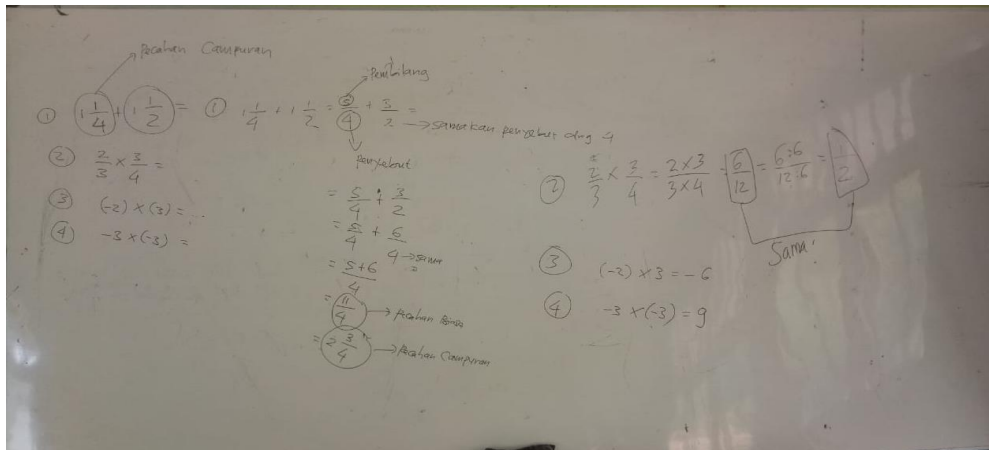 Pecahan Campuran
① 1 1/4 + 1 1/2 =
② 2/3 × 3/4 =
③ (-2) × (3) = ...
④ -3 × (-3) =
Pembilang
① 1 1/4 + 1 1/2 = 5/4 + 3/2 =
→ samakan penyebut dng 4
Penyebut
= 5/4 + 3/2
= 5/4 + 6/4 → sama
= 5+6/4
= 11/4 → Pecahan Biasa
= 2 3/4 → Pecahan Campuran
② 2/3 × 3/4 = 2×3/3×4 = 6/12 = 6:6/12:6 = 1/2
Sama!
③ (-2) × 3 = -6
④ -3 × (-3) = 9